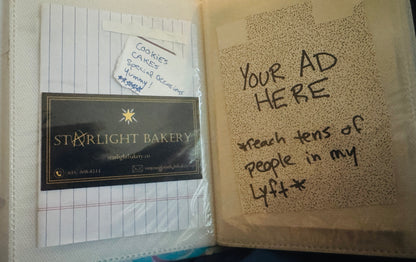 COOKIES
CAKES
Special Occasions
Yummy!
STARLIGHT BAKERY
starlightbakery.co
YOUR AD
HERE
*reach tens of
people in my
Lyft*